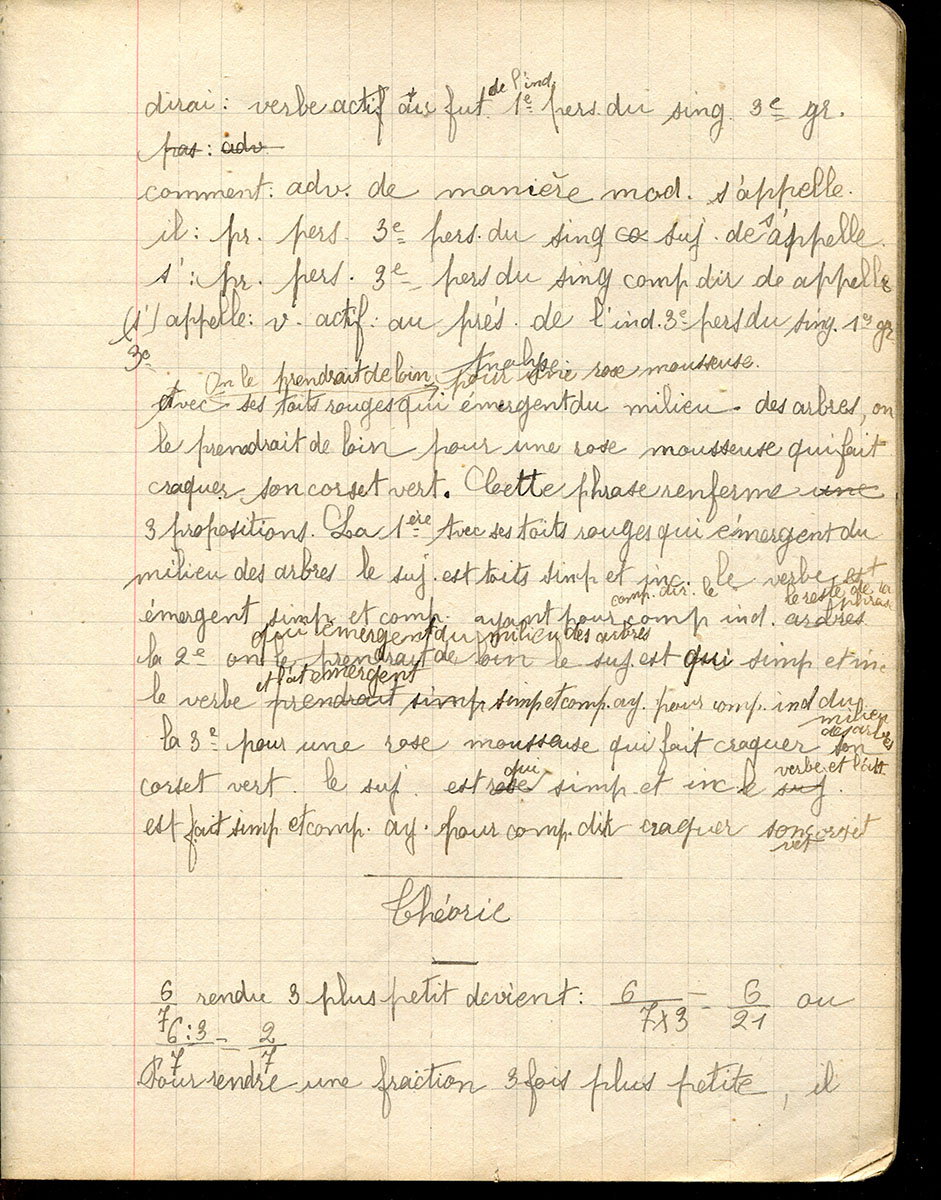 de l'ind.
dirai: verbe actif au fut. 1e pers. du sing. 3e gr.
pas: adv
comment: adv. de manière mod. s'appelle.
il: pr. pers. 3e pers. du sing suj. de s'appelle.
s': pr. pers. 3e pers du sing comp dir de appelle
(s') appelle: v. actif. au prés. de l'ind. 3e pers du sing. 1er gr
3e
Analyse
On le prendrait de loin pour une rose mousseuse.
Avec ses toits rouges qui émergent du milieu des arbres, on
le prendrait de loin pour une rose mousseuse qui fait
craquer son corset vert. Cette phrase renferme une
3 propositions. La 1ère Avec ses toits rouges qui émergent du
milieu des arbres le suj. est toits simp et inc. le verbe est
comp. dir. le le reste de la phrase
émergent simp et comp. ayant pour comp ind. arbres
qui émergent du milieu des arbres
la 2e on le prendrait de loin le suj est qui simp et inc
et l'att émergent
le verbe prendrait simp simp et comp. ay. pour comp. ind du
milieu
des arbres
la 3e pour une rose mousseuse qui fait craquer son
qui verbe et l'att.
corset vert. le suj. est rose simp. et inc le suj.
est fait simp et comp. ay. pour comp. dir craquer son corset
vert
Théorie
6/7 rendu 3 plus petit devient: 6/7x3 = 6/21 ou
6:3/7 = 2/7
Pour rendre une fraction 3 fois plus petite, il